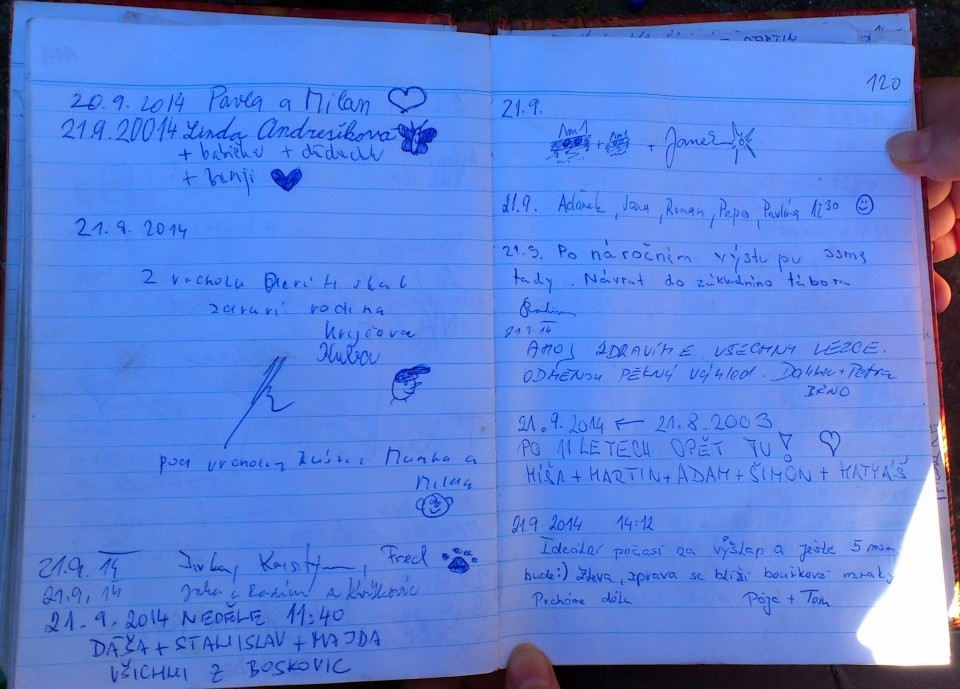 20.9.2014 Pavla a Milan
21.9.20014 Linda Andresíková
+ babička + dědeček
+ benji
21.9.2014
Z vrcholu skal
zdraví rodina
Kryčova
pod vrcholem Mamka a
21.9.14 Jirka, Kristýna, Fred
21.9.14 Jitka a Radim
21.9.2014 NEDĚLE 11:40
DÁŠA + STANISLAV + MAJDA
VŠICHNI Z BOSKOVIC
120
21.9.
+ + Janek
21.9. Adámek, Jana, Roman, Pepa, Pavlína 1230
21.9. Po náročném výstupu jsme
tady. Návrat do základního tábora
Radim
21.9.14
AHOJ ZDRAVÍME VŠECHNY LEZCE.
ODMĚNOU PĚKNÝ VÝHLED. Dalibor + Petra
BRNO
21.9.2014 ← 21.8.2003
PO 11 LETECH OPĚT TU!
MÍŠA + MARTIN + ADAM + ŠIMON + MATYÁŠ
21.9.2014 14:12
Ideální počasí na výšlap a ještě 5 min
bude:) Zleva, zprava se blíží bouřkové mraky
Prcháme dolů Pája + Tom